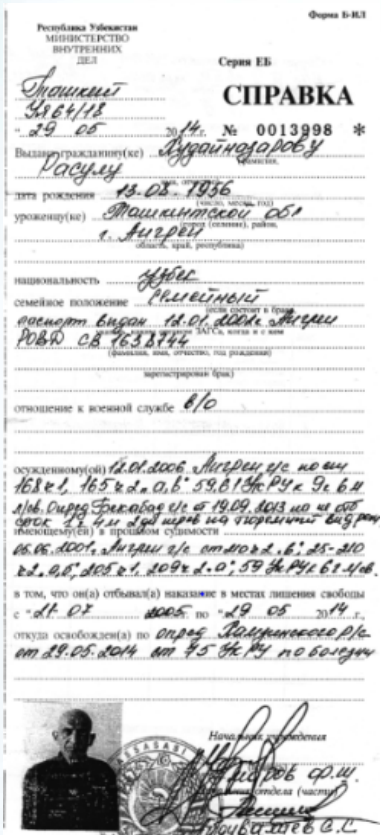 Форма Б-ИЛ
Республика Узбекистан
МИНИСТЕРСТВО
ВНУТРЕННИХ
ДЕЛ
Серия ЕБ
Ташкент
Уя 64/18
СПРАВКА
"29 05 2014г. № 0013998 *
Выдана гражданину(ке) Худайназарову
фамилия,
Расулу
дата рождения 13.08.1956
(число, месяц, год)
уроженцу(ке) Ташкентской обл
(город (селение), район,
г. Ангрен
область, край, республика)
национальность узбек
семейное положение семейный
(если состоит в браке,
паспорт выдан 12.01.2002г Ангрен
каким органом ЗАГСа, когда и с кем
РОВД СВ 1638744
(фамилия, имя, отчество, год рождения)
зарегистрирован брак)
отношение к военной службе в/о
осужденному(ой) 12.01.2006 Ангрен г/с по
168 ч 1, 165 ч 2 "а,в" 59,61 УкРУ к 9г 6м
л/св. Опред Бекабад г/с от 19.09.2013 на не отб
срок 1г 4м 2дн
имеющему(ей) в прошлом судимости
06.06.2001, Ангрен г/с ст
ч 2 "а,б", 205 ч 1, 209 ч 2 "а", 59 УкРУ к 6г л/св.
в том, что он(а) отбывал(а) наказание в местах лишения свободы
с "27 07 2005 по "29 05 2014 г.,
откуда освобожден(а) по опред Хамзинского р/с
от 29.05.2014 ст 75 УкРУ по болезни
Начальник учреждения
Ф.Ш.
отдела (части)
С.С